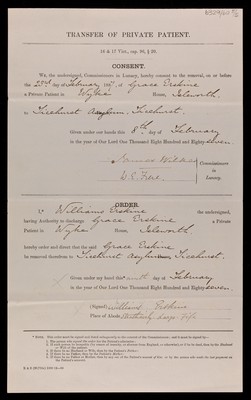 TRANSFER OF PRIVATE PATIENT.
16 & 17 VICT., cap. 96, § 20.
CONSENT.
WE, the undersigned, Commissioners in Lunacy, hereby consent to the removal, on or before
the 23rd day of February of Grace Erskine
a Private Patient in Wyke House, Isleworth.
to Ticehurst Asylum, Ticehurst.
Given under our hands this 8th day of February
in the year of Our Lord One Thousand Eight Hundred and Eighty seven.
James Wilkes
Commissioners
in
Lunacy.
ORDER.
I, William Erskine the undersigned,
having Authority to discharge Grace Erskine a Private
Patient in Wyke House, Isleworth.
hereby order and direct that the said Grace Erskine
be removed therefrom to Ticehurst Asylum Ticehurst.
Given under my hand this ninth day of February
in the year of Our Lord One Thousand Eight Hundred and Eighty seven.
(Signed) William Erskine
Place of Abode